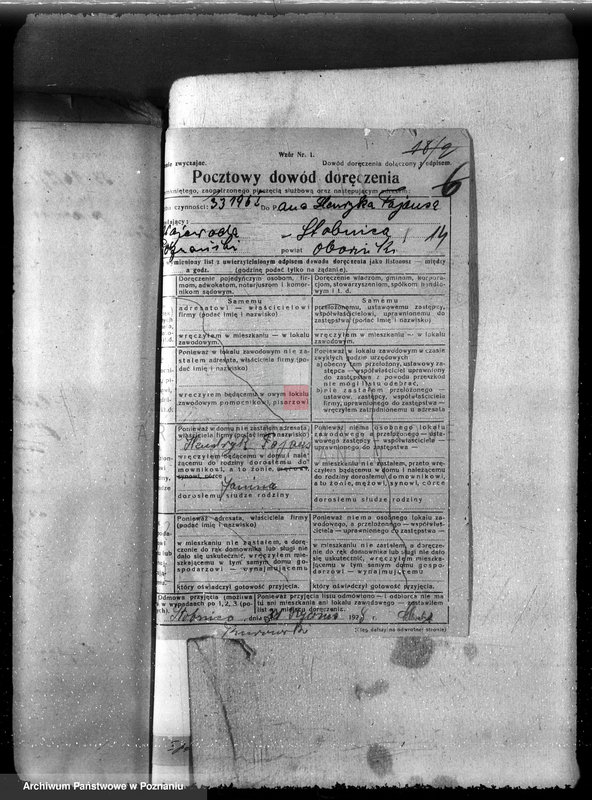 18/9
Wzór Nr. 1.
nie zwyczajne. Dowód doręczenia dołączony z odpisem.
Pocztowy dowód doręczenia
6
zamkniętego, zaopatrzonego pieczęcią służbową oraz następującym adresem:
czynności: 331962 Do Pana Henryka Fajansa
Wojewoda – Słobnica 14
Poznański powiat Oborniki
mieniony list z uwierzytelnionym odpisem dowodu doręczenia jako listonosz — między
a godz. (godzinę podać tylko na żądanie).
Doręczenie pojedyńczym osobom, firmom, adwokatom, notarjuszom i komornikom sądowym.
Samemu
adresatowi — właścicielowi
firmy (podać imię i nazwisko)
wręczyłem w mieszkaniu — w lokalu
zawodowym.
Ponieważ w lokalu zawodowym nie zastałem adresata, właściciela firmy (podać imię i nazwisko)
wręczyłem będącemu w owym lokalu
zawodowym pomocnikowi, pisarzowi
Ponieważ w domu nie zastałem adresata
właściciela firmy (podać imię i nazwisko)
Henryk Fajans
wręczyłem będącemu w domu i należącemu do rodziny dorosłemu domownikowi, a to żonie,
synowi, córce
Janina
dorosłemu słudze rodziny
Ponieważ adresata, właściciela firmy
(podać imię i nazwisko)
w mieszkaniu nie zastałem, a doręczenie do rąk domownika lub sługi nie
dało się uskutecznić, wręczyłem mieszkającemu w tym samym domu gospodarzowi — wynajmującemu
który oświadczył gotowość przyjęcia.
Doręczenie władzom, gminom, korporacjom, stowarzyszeniom, spółkom handlowym i t. d.
Samemu
przełożonemu, ustawowemu zastępcy,
współwłaścicielowi, uprawnionemu do
zastępstwa (podać imię i nazwisko)
wręczyłem w mieszkaniu — w lokalu
zawodowym.
Ponieważ w lokalu zawodowym w czasie
zwykłych godzin urzędowych
a) obecny tem przełożony, ustawowy zastępca — współwłaściciel uprawniony
do zastępstwa z powodu przeszkód
nie mógł listu odebrać,
b) nie zastałem przełożonego —
ustawow. zastępcy, współwłaściciela
firmy, uprawnionego do zastępstwa —
wręczyłem zatrudnionemu u adresata
Ponieważ niema osobnego lokalu
zawodowego a przełożonego — ustawowego zastępcy — współwłaściciela —
uprawnionego do zastępstwa —
w mieszkaniu nie zastałem, przeto wręczyłem będącemu w domu i należącemu
do rodziny dorosłemu domownikowi,
a to żonie, mężowi, synowi, córce
dorosłemu słudze rodziny
Ponieważ niema osobnego lokalu zawodowego, a przełożonego — współwłaściciela — uprawnionego do zastępstwa —
w mieszkaniu nie zastałem, a doręczenie do rąk domownika lub sługi nie dało
się uskutecznić, wręczyłem mieszkającemu w tym samym domu gospodarzowi — wynajmującemu
który oświadczył gotowość przyjęcia.
Odmowa przyjęcia (możliwa
w wypadkach po 1, 2, 3
Ponieważ przyjęcia listu odmówiono — i odbiorca nie ma
tu ani mieszkania ani lokalu zawodowego — zostawiłem
list na miejscu doręczenia.
Słobnica, dnia 193 r.
(Ciąg dalszy na odwrotnej stronie)
Archiwum Państwowe w Poznaniu